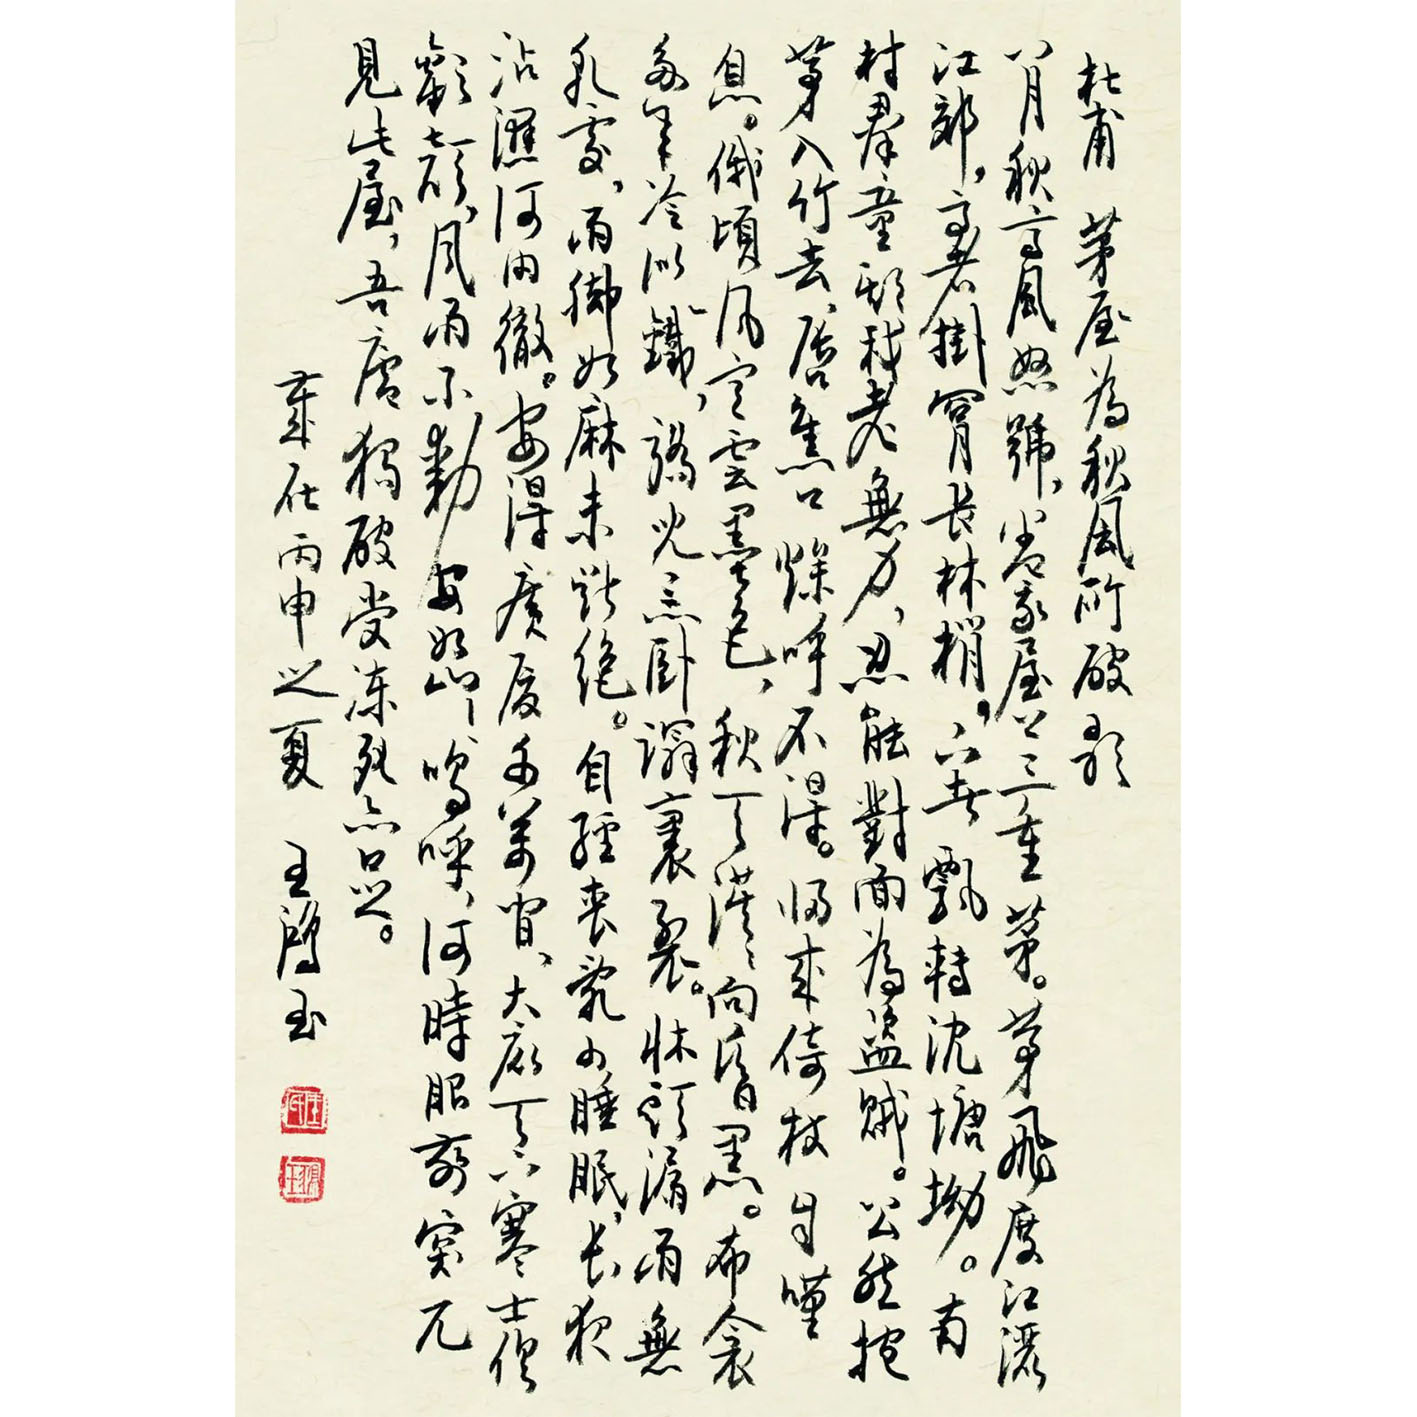 杜甫 茅屋為秋風所破歌
八月秋高風怒號,卷我屋上三重茅。茅飛度江灑
江郊,高者掛罥長林梢。下者飄轉沈塘坳。南
村羣童欺我老無力,忍能對面為盜賊。公然抱
茅入竹去,唇焦口燥呼不得。歸來倚杖自嘆
息。俄頃風定雲墨色,秋天漠漠向昏黑。布衾
多年冷似鐵,驕兒惡臥蹋裏裂。牀頭漏雨無
乾處,雨腳如麻未斷絕。自經喪亂少睡眠,長夜
沾濕何由徹。安得廣廈千萬間,大庇天下寒士俱
歡顏,風雨不動安如山,嗚呼,何時眼前突兀
見此屋,吾廬獨破受凍死亦足。
歲在丙申之夏 王鴻玉